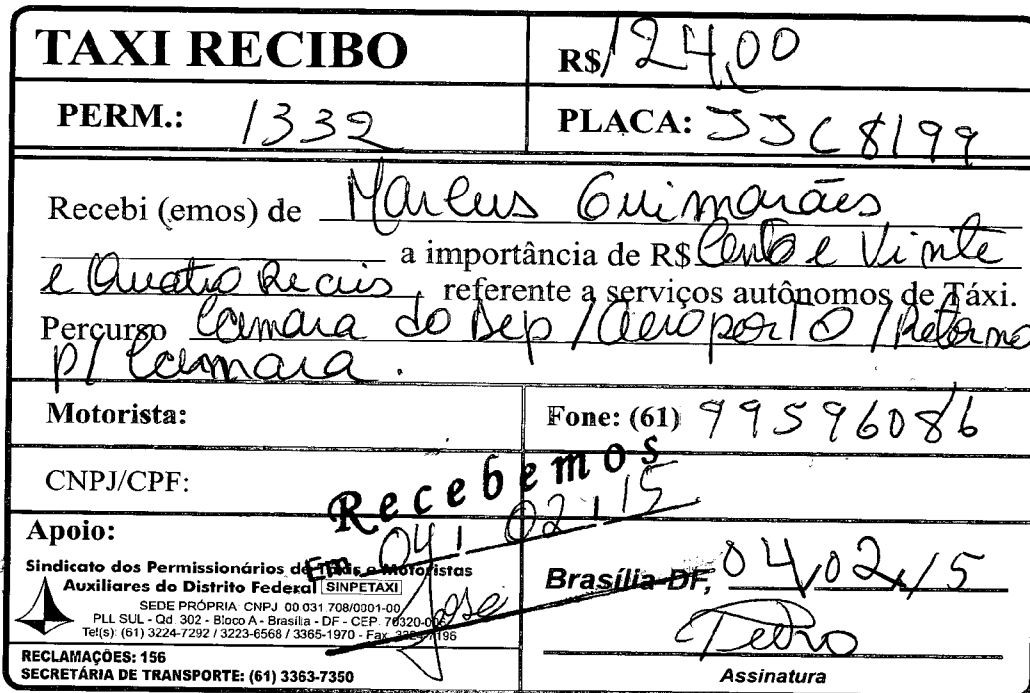 TAXI RECIBO
R$ 124,00
PERM.: 1332
PLACA: JJC 8199
Recebi (emos) de Marcus Guimarães
a importância de R$ Cento e Vinte
e Quatro Reais, referente a serviços autônomos de Táxi.
Percurso Camara do Dep / Aeroporto / Retorno
p/ Camara.
Motorista:
Fone: (61) 99596086
CNPJ/CPF:
Recebemos
Em 04 / 02 / 15
Jose
Apoio:
Sindicato dos Permissionários de Táxis e Motoristas
Auxiliares do Distrito Federal SINPETAXI
SEDE PRÓPRIA CNPJ 00 031 708/0001-00
PLL SUL - Qd. 302 - Bloco A - Brasília - DF - CEP. 70320-
Tel(s): (61) 3224-7292 / 3223-6568 / 3365-1970 - Fax. 3224-7196
RECLAMAÇÕES: 156
SECRETÁRIA DE TRANSPORTE: (61) 3363-7350
Brasília-DF, 04/02/15
Pedro
Assinatura